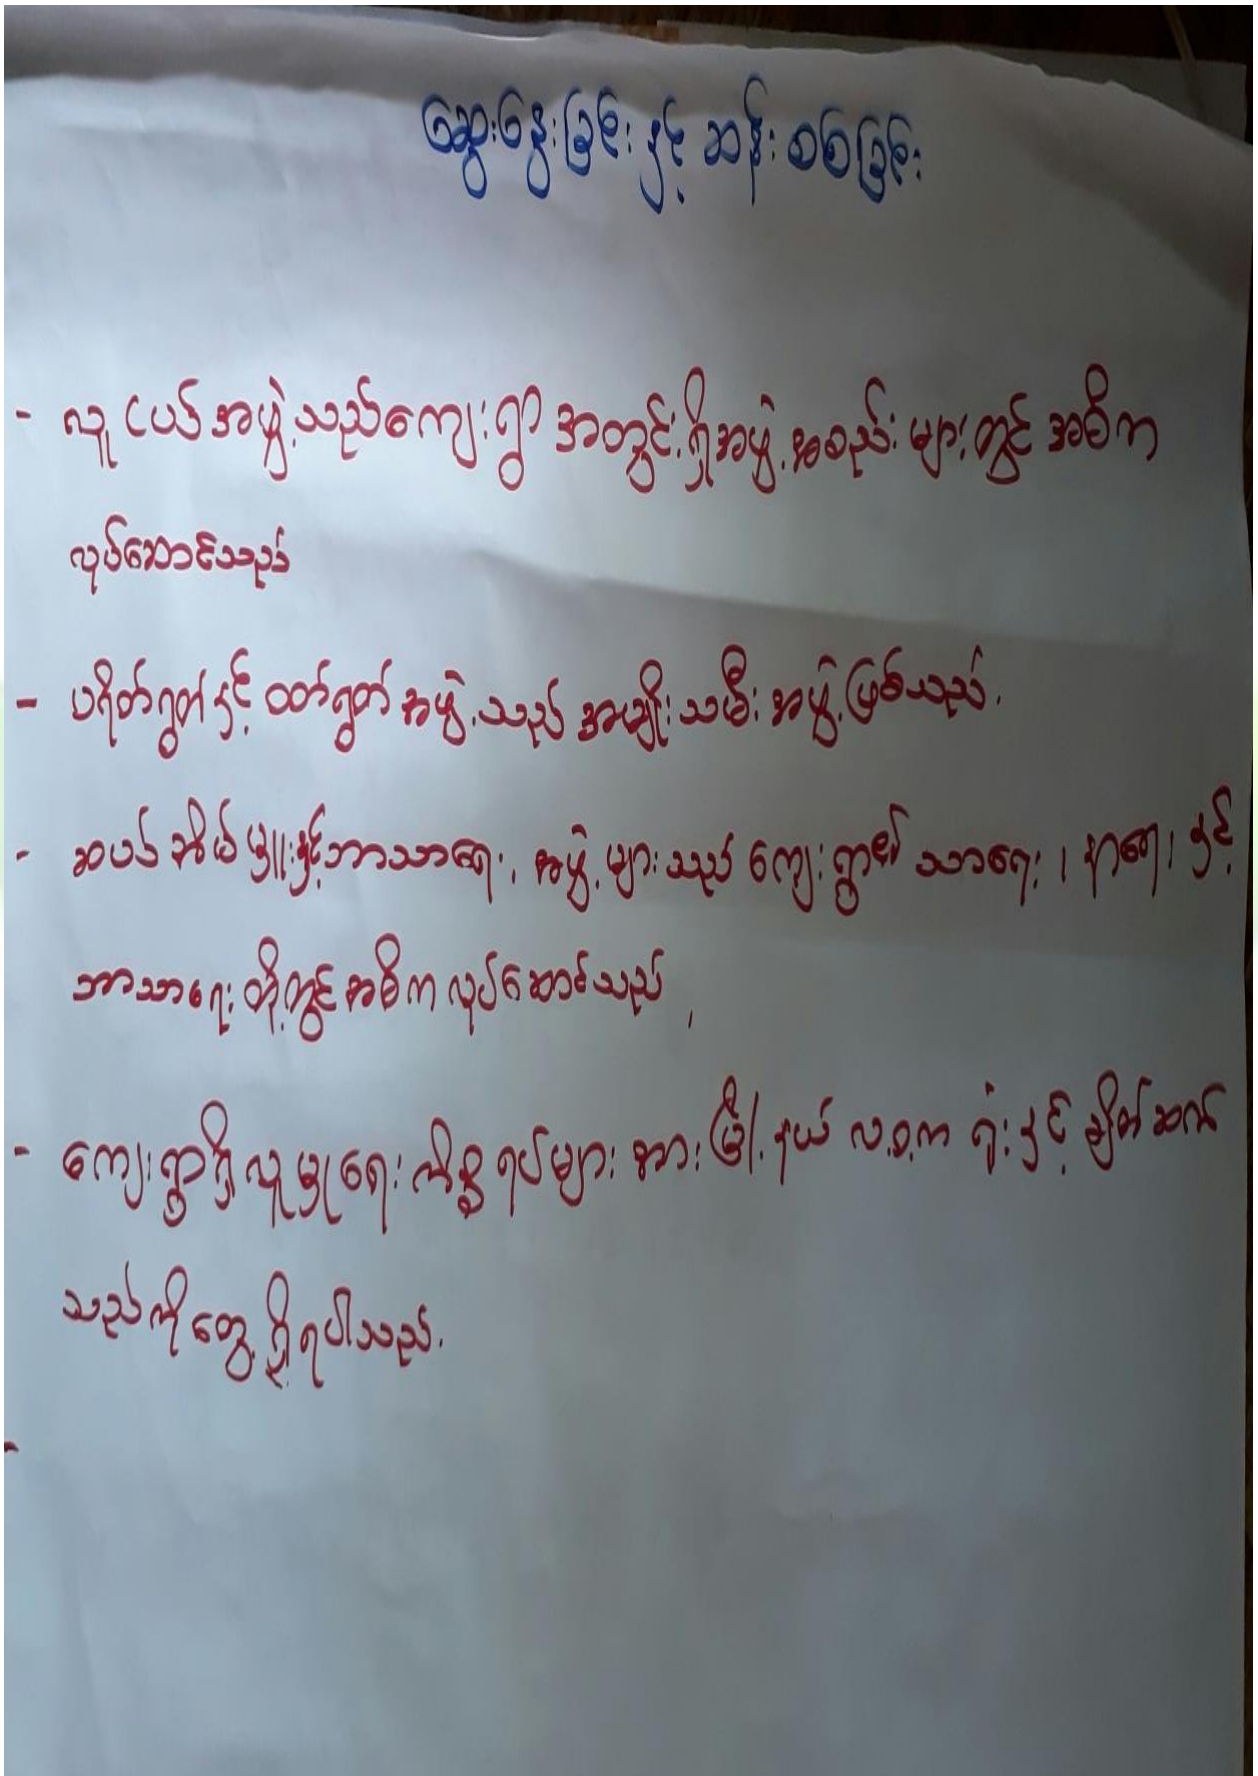 ဆွေးနွေးခြင်း နှင့် ဆန်းစစ်ခြင်း
- လူငယ်အဖွဲ့သည်ကျေးရွာ အတွင်းရှိအဖွဲ့အစည်းများတွင် အဓိက
လုပ်ဆောင်သည်
- ပရိတ်ရွတ်နှင့် ထတ်ရွတ် အဖွဲ့သည် အမျိုးသမီး အဖွဲ့ဖြစ်သည်.
- ဆယ်အိမ်မှူးနှင့်ဘာသာရေး အဖွဲ့များသည် ကျေးရွာ၏ သာရေး၊ နာရေး နှင့်
ဘာသာရေး တို့တွင် အဓိက လုပ်ဆောင်သည်
- ကျေးရွာရှိ လူမှုရေး ကိစ္စရပ်များ အား မြို့နယ် လ.ဝ.က ရုံးနှင့် ချိတ်ဆက်
သည်ကိုတွေ့ရှိရပါသည်.
-